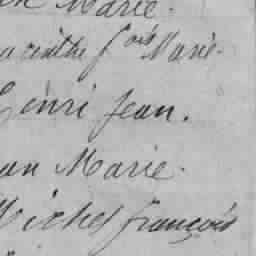 Marie.
f ois Marie.
Henri Jean.
an Marie.
Michel françois